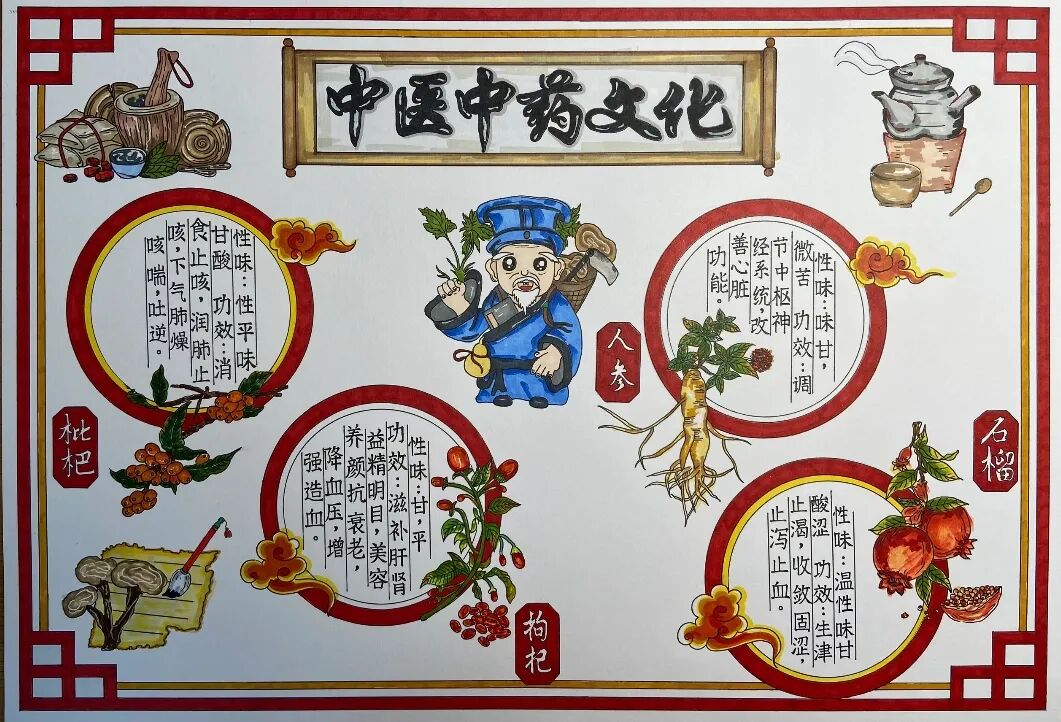 中医中药文化
性味:性平味
甘酸 功效:消
食止咳,润肺止
咳,下气肺燥
咳喘,吐逆。
枇杷
性味:甘,平
功效:滋补肝肾
益精明目,美容
养颜抗衰老,
降血压,增
强造血。
枸杞
性味:味甘,
微苦 功效:调
节中枢神
经系统,改
善心脏
功能。
人参
性味:温性味甘
酸涩 功效:生津
止渴,收敛固涩,
止泻止血。
石榴